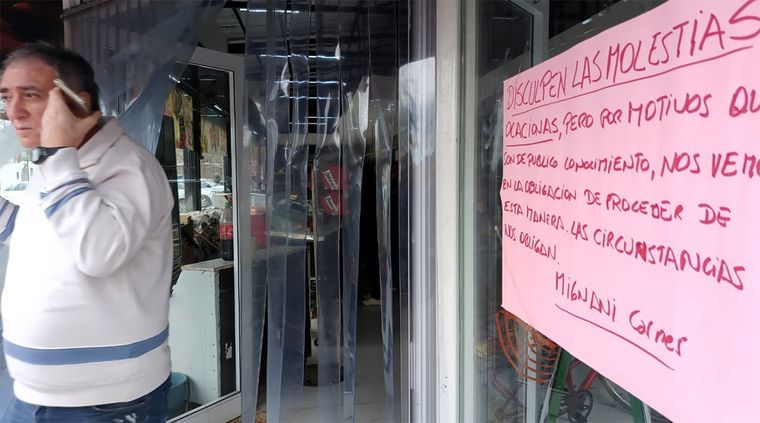 DISCULPEN LAS MOLESTIAS
OCACIONAS, PERO POR MOTIVOS QU
SON DE PUBLICO CONOCIMIENTO, NOS VEMO
EN LA OBLIGACION DE PROCEDER DE
ESTA MANERA. LAS CIRCUNSTANCIAS
NOS OBLIGAN.
MIGNANI Carnes